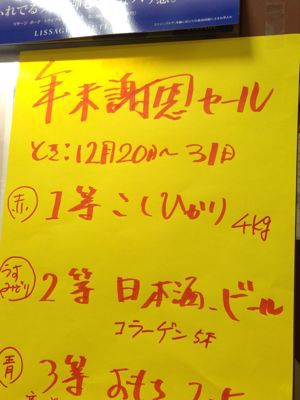 年末謝恩セール
とき:12月20日〜31日
赤 1等 こしひかり 4kg
うすみどり 2等 日本酒、ビール
コラーゲン 5本
青 3等 おもち
LISSAGE